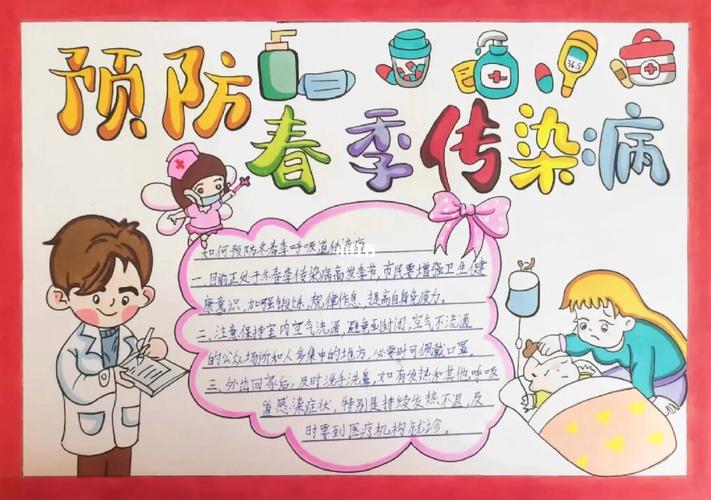 预防
春季传染病
36.5
如何预防冬春季呼吸道传染病
一、目前正处于冬春季传染病高发季节,市民要增强卫生健
康意识、加强锻炼、规律作息、提高自身免疫力。
二、注意保持室内空气流通,避免到封闭,空气不流通
的公众场所和人多集中的地方,必要时可佩戴口罩
三、外出回家后,及时洗手洗鼻,如有发热和其他呼吸
道感染症状,特别是持续发热不退,及
时要到医疗机构就诊。